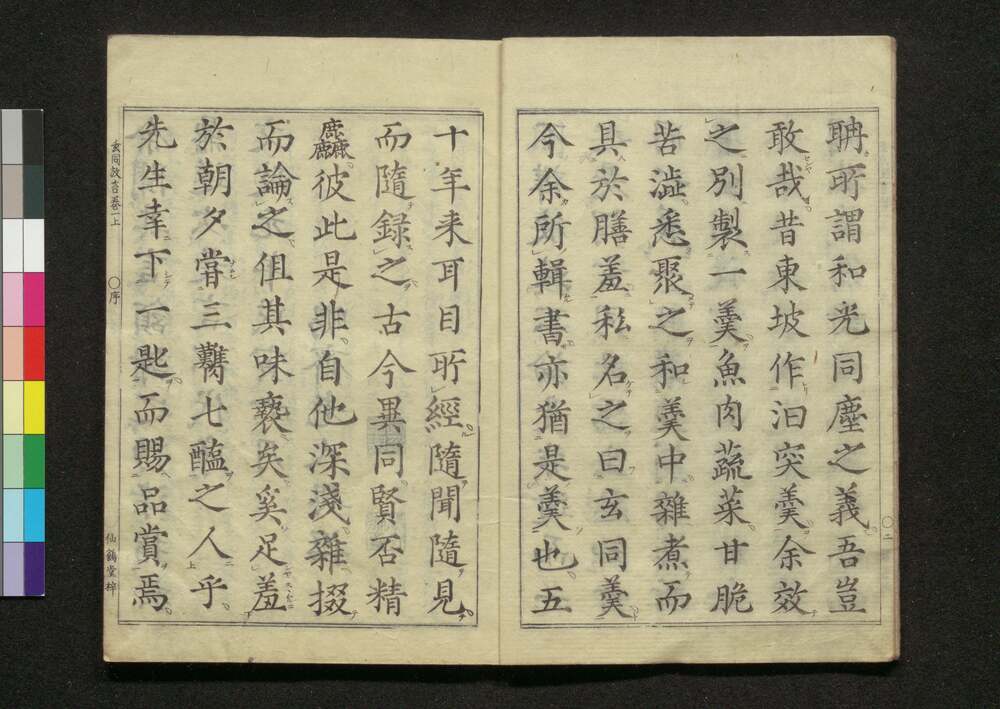 聃所謂和光同塵之義吾豈
敢哉昔東坡作汩突羹余效
之別製一羹魚肉蔬菜甘脆
苦澁悉聚之和羹中雜煮而
具於膳羞私名之曰玄同羹
今余所輯書亦猶是羹也五
十年来耳目所經隨聞隨見
而隨録之古今異同賢否精
麤彼此是非自他深淺雜掇
而論之伹其味褻矣奚足羞
於朝夕甞三臡七醢之人乎
先生幸下一匙而賜品賞焉
玄同放言巻一上
〇序
仙鶴堂梓
〇二